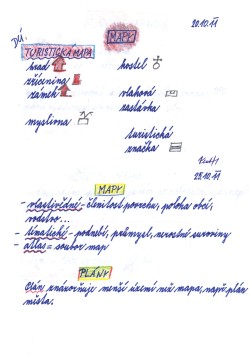 20.10.11
DÚ.
MAPY
TURISTICKÁ MAPA
hrad
kostel
zřícenina
zámek
vlaková
zastávka
myslivna
turistická
značka
25.10.11
MAPY
- vlastivědné - členitost povrchu, poloha obcí,
vodstvo...
- tématické - podnebí, průmysl, nerostné suroviny
- atlas = soubor map
PLÁNY
Plán znázorňuje menší území než mapa, např. plán
města.